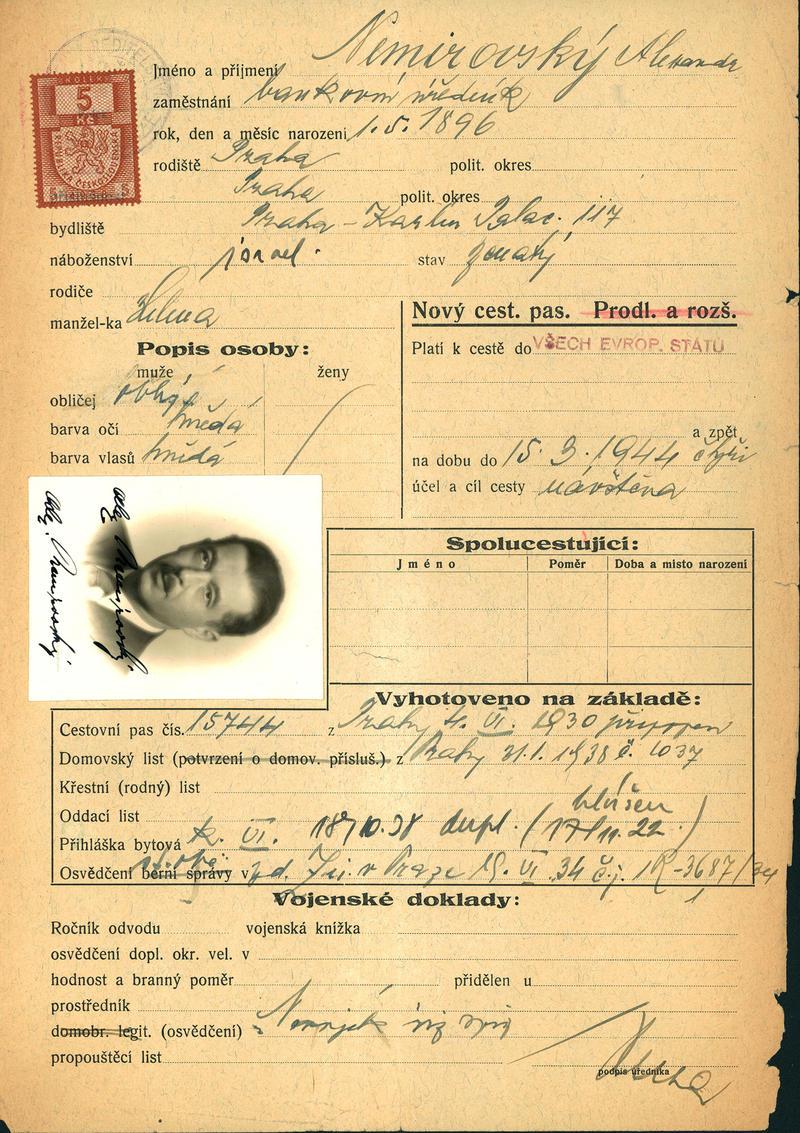 KOLEK
5
Kč
Jméno a příjmení Nemirovský Alexandr
zaměstnání bankovní úředník
rok, den a měsíc narození 1. 5. 1896
rodiště Praha polit. okres
Praha polit. okres
bydliště Praha - Karlín Palac. 117
náboženství israel. stav ženatý
rodiče
manžel-ka Helena
Nový cest. pas. Prodl. a rozš.
Platí k cestě do VŠECH EVROP. STÁTŮ
Popis osoby:
muže ženy
obličej
barva očí hnědá
barva vlasů hnědá
a zpět
na dobu do 15. 3. 1944 čtyři
účel a cíl cesty návštěva
Spolucestující:
Jméno Poměr Doba a místo narození
Vyhotoveno na základě:
Cestovní pas čís. 15744 z Prahy 4. VI. 1930 připojen
Domovský list (potvrzení o domov. přísluš.) z Prahy 21.1. 1938 č. 1037
Křestní (rodný) list
Oddací list
hlášen
Přihláška bytová VI. 18/10.38 dupl. (17/11.22.)
Osvědčení berní správy v Praze 19. VI. 34 č.j. 1R-3687/34
Vojenské doklady:
Ročník odvodu vojenská knížka
osvědčení dopl. okr. vel. v
hodnost a branný poměr přidělen u
prostředník
domobr. legit. (osvědčení)
propouštěcí list
podpis úředníka